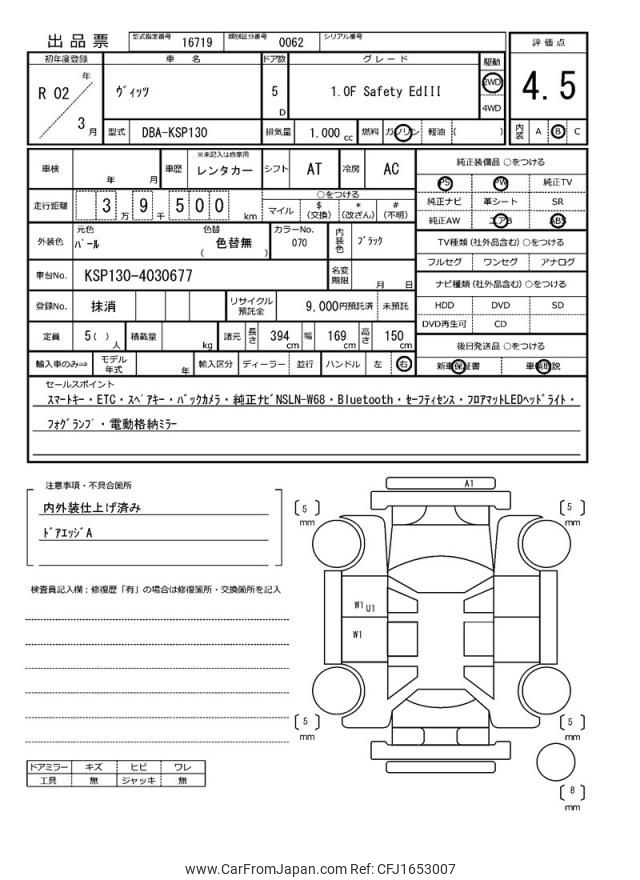 出品票 型式指定番号 16719 類別区分番号 0062 シリアル番号
初年度登録 車名 ドア数 グレード 駆動 評価点
R 02 年 3 月 ヴィッツ 5 D 1.0F Safety EdIII 2WD 4WD 4.5
型式 DBA-KSP130 排気量 1,000 cc 燃料 ガソリン 軽油 ( ) 内装 A B C
車検 年 月 車歴 ※未記入は自家用 レンタカー シフト AT 冷房 AC
走行距離 3 万 9 千 5 0 0 km ○をつける マイル $ (交換) * (改ざん) # (不明)
外装色 元色 パール 色替 色替無 ( ) カラーNo. 070 内装色 ブラック
車台No. KSP130-4030677 名変期限 月 日
登録No. 抹消 リサイクル預託金 9,000円預託済 未預託
定員 5( ) 人 積載量 kg 諸元 長さ 394 cm 幅 169 cm 高さ 150 cm
輸入車のみ⇒ モデル年式 年 輸入区分 ディーラー 並行 ハンドル 左 右
純正装備品 ○をつける
PS PW 純正TV
純正ナビ 革シート SR
純正AW エアB ABS
TV種類(社外品含む)○をつける
フルセグ ワンセグ アナログ
ナビ種類(社外品含む)○をつける
HDD DVD SD
DVD再生可 CD
後日発送品 ○をつける
新車保証書 車輌取説
セールスポイント
スマートキー・ETC・スペアキー・バックカメラ・純正ナビNSLN-W68・Bluetooth・セーフティセンス・フロアマットLEDヘッドライト・
フォグランプ・電動格納ミラー
注意事項・不具合箇所
内外装仕上げ済み
ドアエッジA
検査員記入欄:修復歴「有」の場合は修復箇所・交換箇所を記入
ドアミラー キズ ヒビ ワレ
工具 無 ジャッキ 無
A1
[ 5 ] mm [ 5 ] mm
W1 U1
W1
[ 5 ] mm [ 5 ] mm
[ 8 ] mm
www.CarFromJapan.com Ref: CFJ1653007